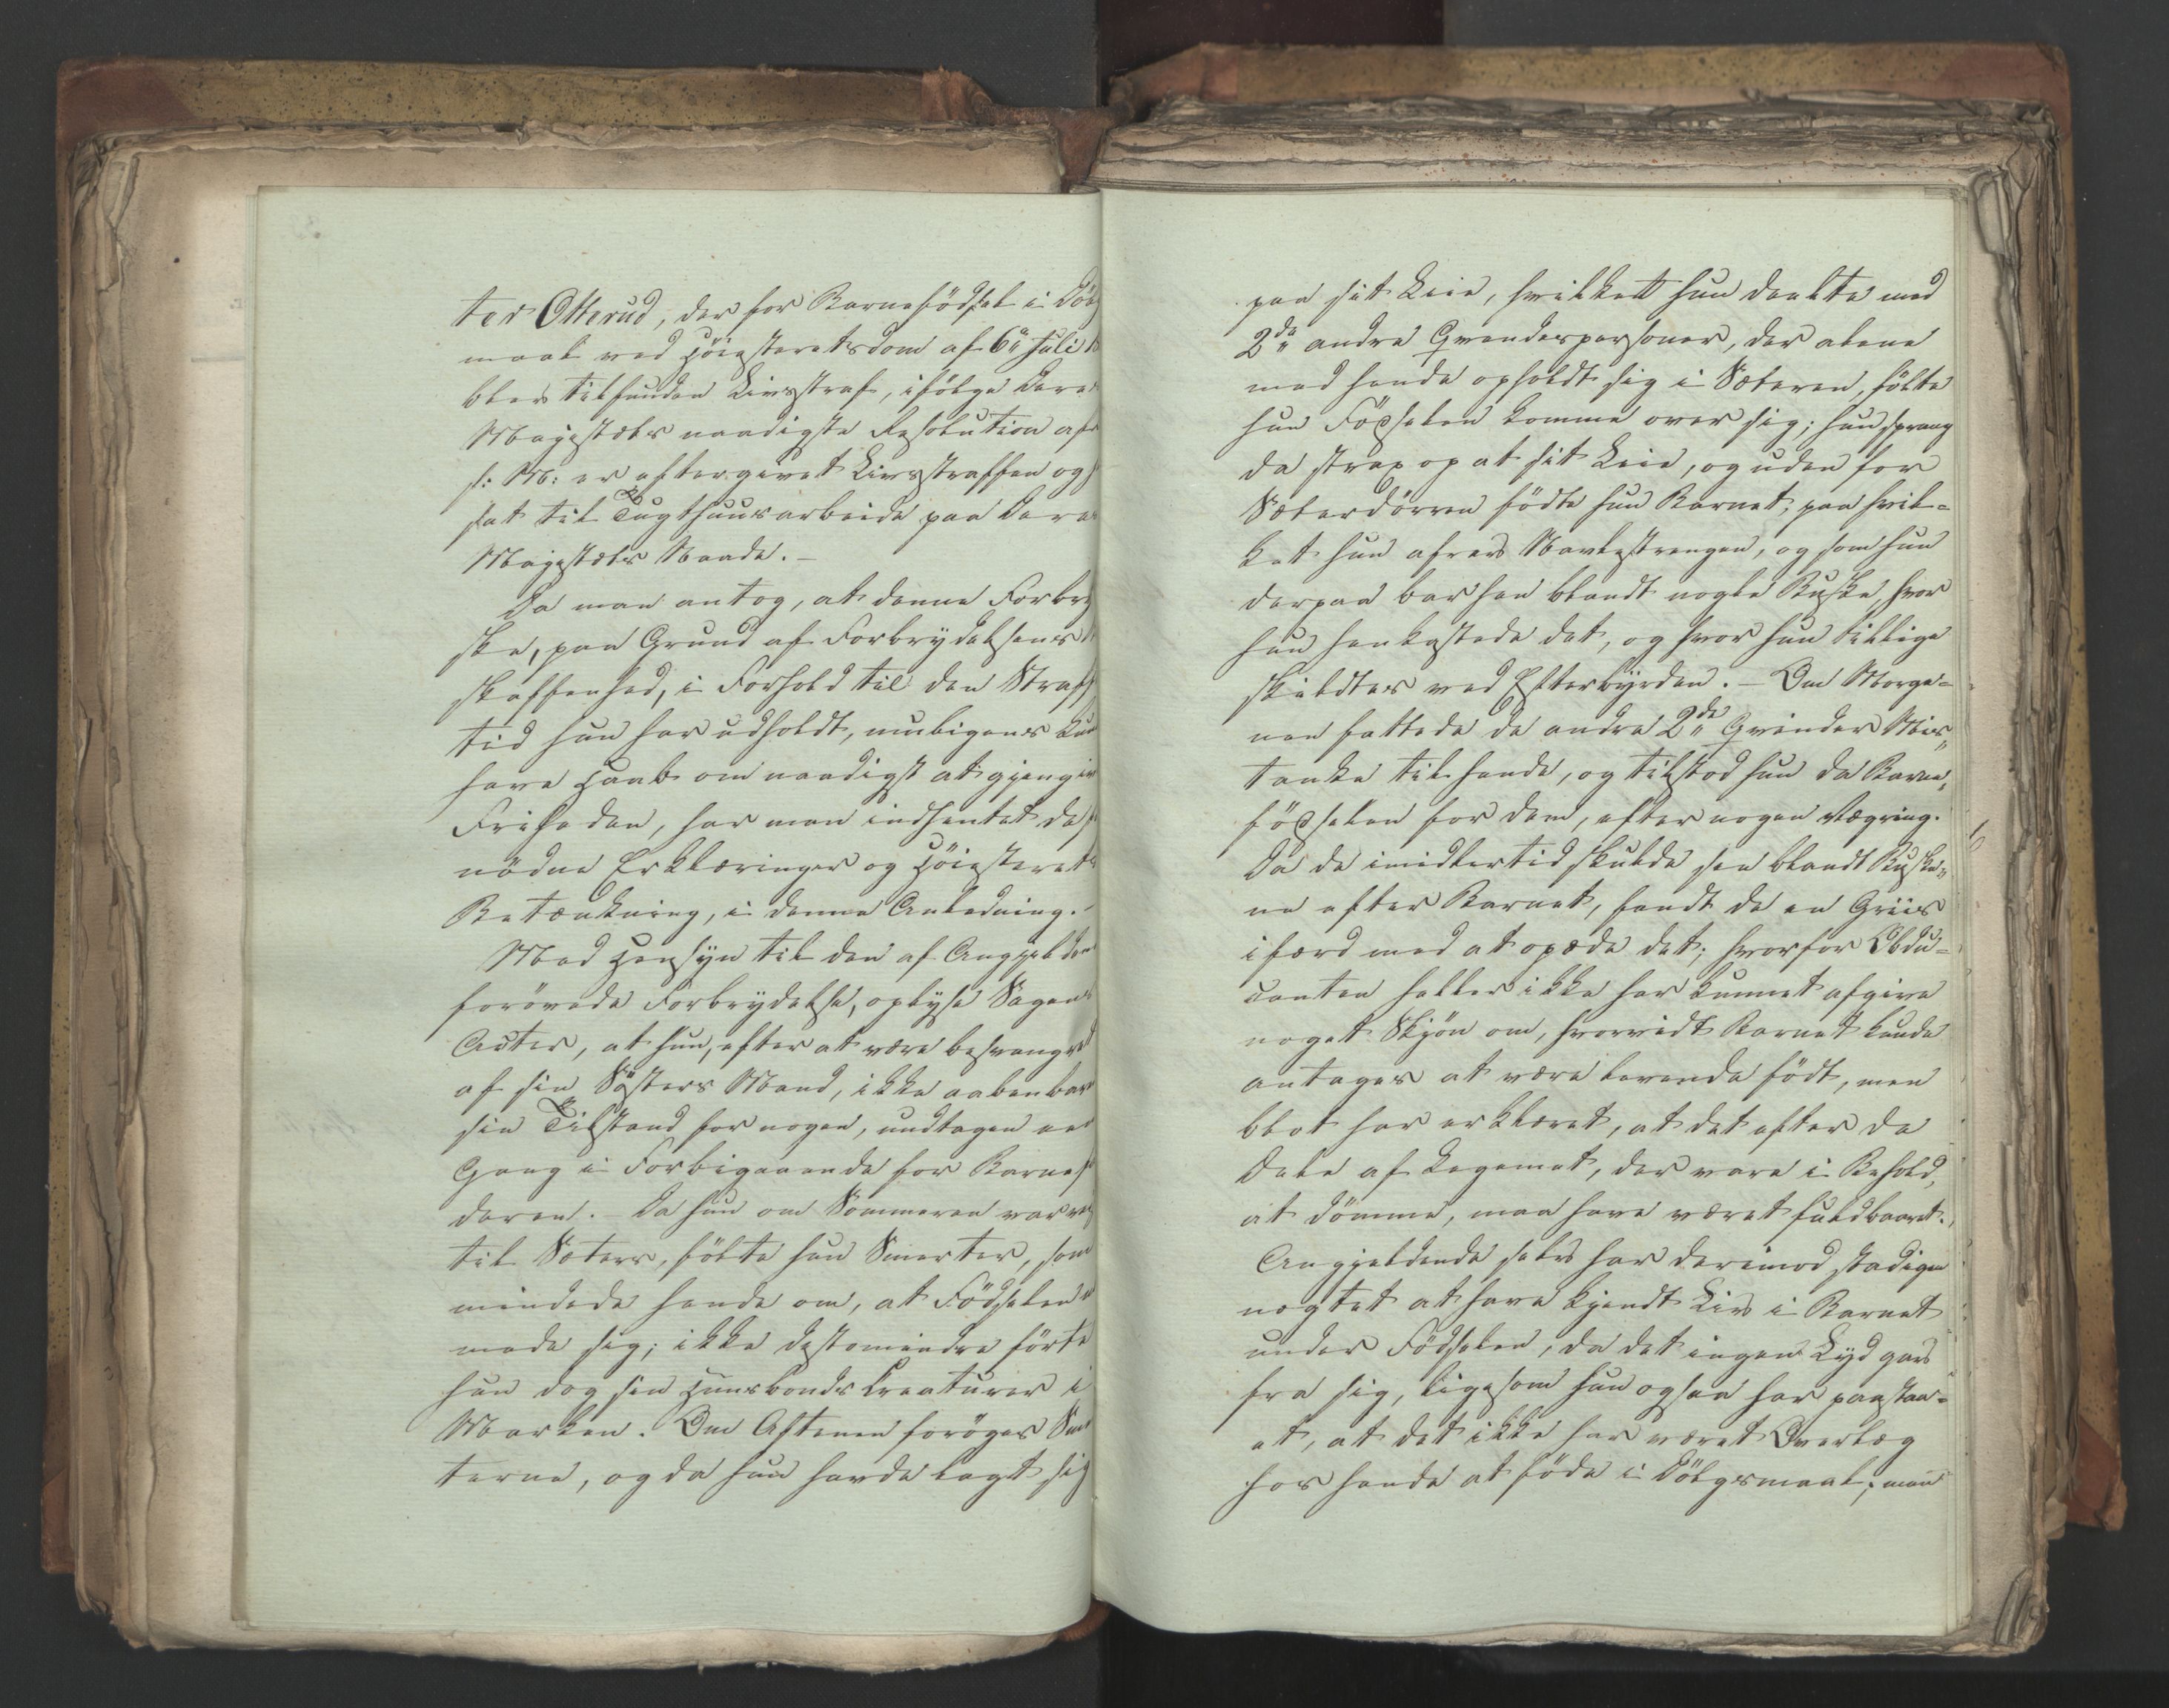 ter Otterud, der for Barnefödsel i Döl
maal ved Höiesteretsdom af 6te Juli 1
blev tilfunden Livsstraf, ifölge Deres
Majestæts naadigste Resolution af
s: M: er eftergivet Livsstraffen og
sat til Tugthuusarbeide paa Deres
Majestæts Naade. -
Da man antog, at denne Forbry
ske, paa Grund af Forbrydelsens
skaffenhed, i Forhold til den Straf
tid hun har udholdt, muligens kun
have Haab om naadigst at gjengiv
Friheden, har man indhentet de
nödne Erklæringer og Höiesterets
Betænkning, i denne Anledning. -
Med Hensyn til den af Angjelden
forövede Forbrydelse, oplyse Sagens
Acter, at hun, efter at være besvangret
af sin Sösters Mand, ikke aabenbar
sin Tilstand for nogen, undtagen een
Gang i Forbigaaende for Barnef
deren. - Da hun om Sommeren var
til Sæters, fölte hun Smerter, som
mindede hende om, at Födselen
mede sig; ikke destomindre förte
hun dog sin Huusbonds Creaturer i
Marken. Om Aftenen forøges Smer
terne, og da hun havde lagt sig
paa sit Leie, hvilket hun deelte med
2de andre Qvindespersoner, der alene
med hende opholdt sig i Sæteren, fölte
hun Födselen komme over sig; hun sprang
da strax op at sit Leie, og uden for
Sæterdörren födte hun Barnet; paa hvil-
ket hun afrev Navlestrengen, og som hun
derpaa bar hen blandt nogle Buske, hvor
hun henkastede det, og hvor hun tillige
skildtes ved Efterbyrden. - Om Morge-
nen fattede de andre 2de Qvinder Mis„
tanke til hende, og tilstod hun da Barne„
födselen for dem, efter nogen Vægring.
Da de imidlertid skulde see blandt Buske„
ne efter Barnet, fandt de en Griis
ifærd med at opæde det; hvorfor Obdu-
centen heller ikke har kunnet afgive
noget Skjön om, hvorvidt Barnet kunde
antages at være levende födt, men
blot har erklæret, at det efter de
Dele af Legemet, der vare i Behold,
at dömme, maa have været fuldbaaret.
Angjeldende selv har derimod stadigen
nægtet at have kjendt Liv i Barnet
under Födselen, da det ingen Lyd gav
fra sig, ligesom hun ogsaa har paastaa-
et, at det ikke har været Overlæg
hos hende at föde i Dölgsmaal; men